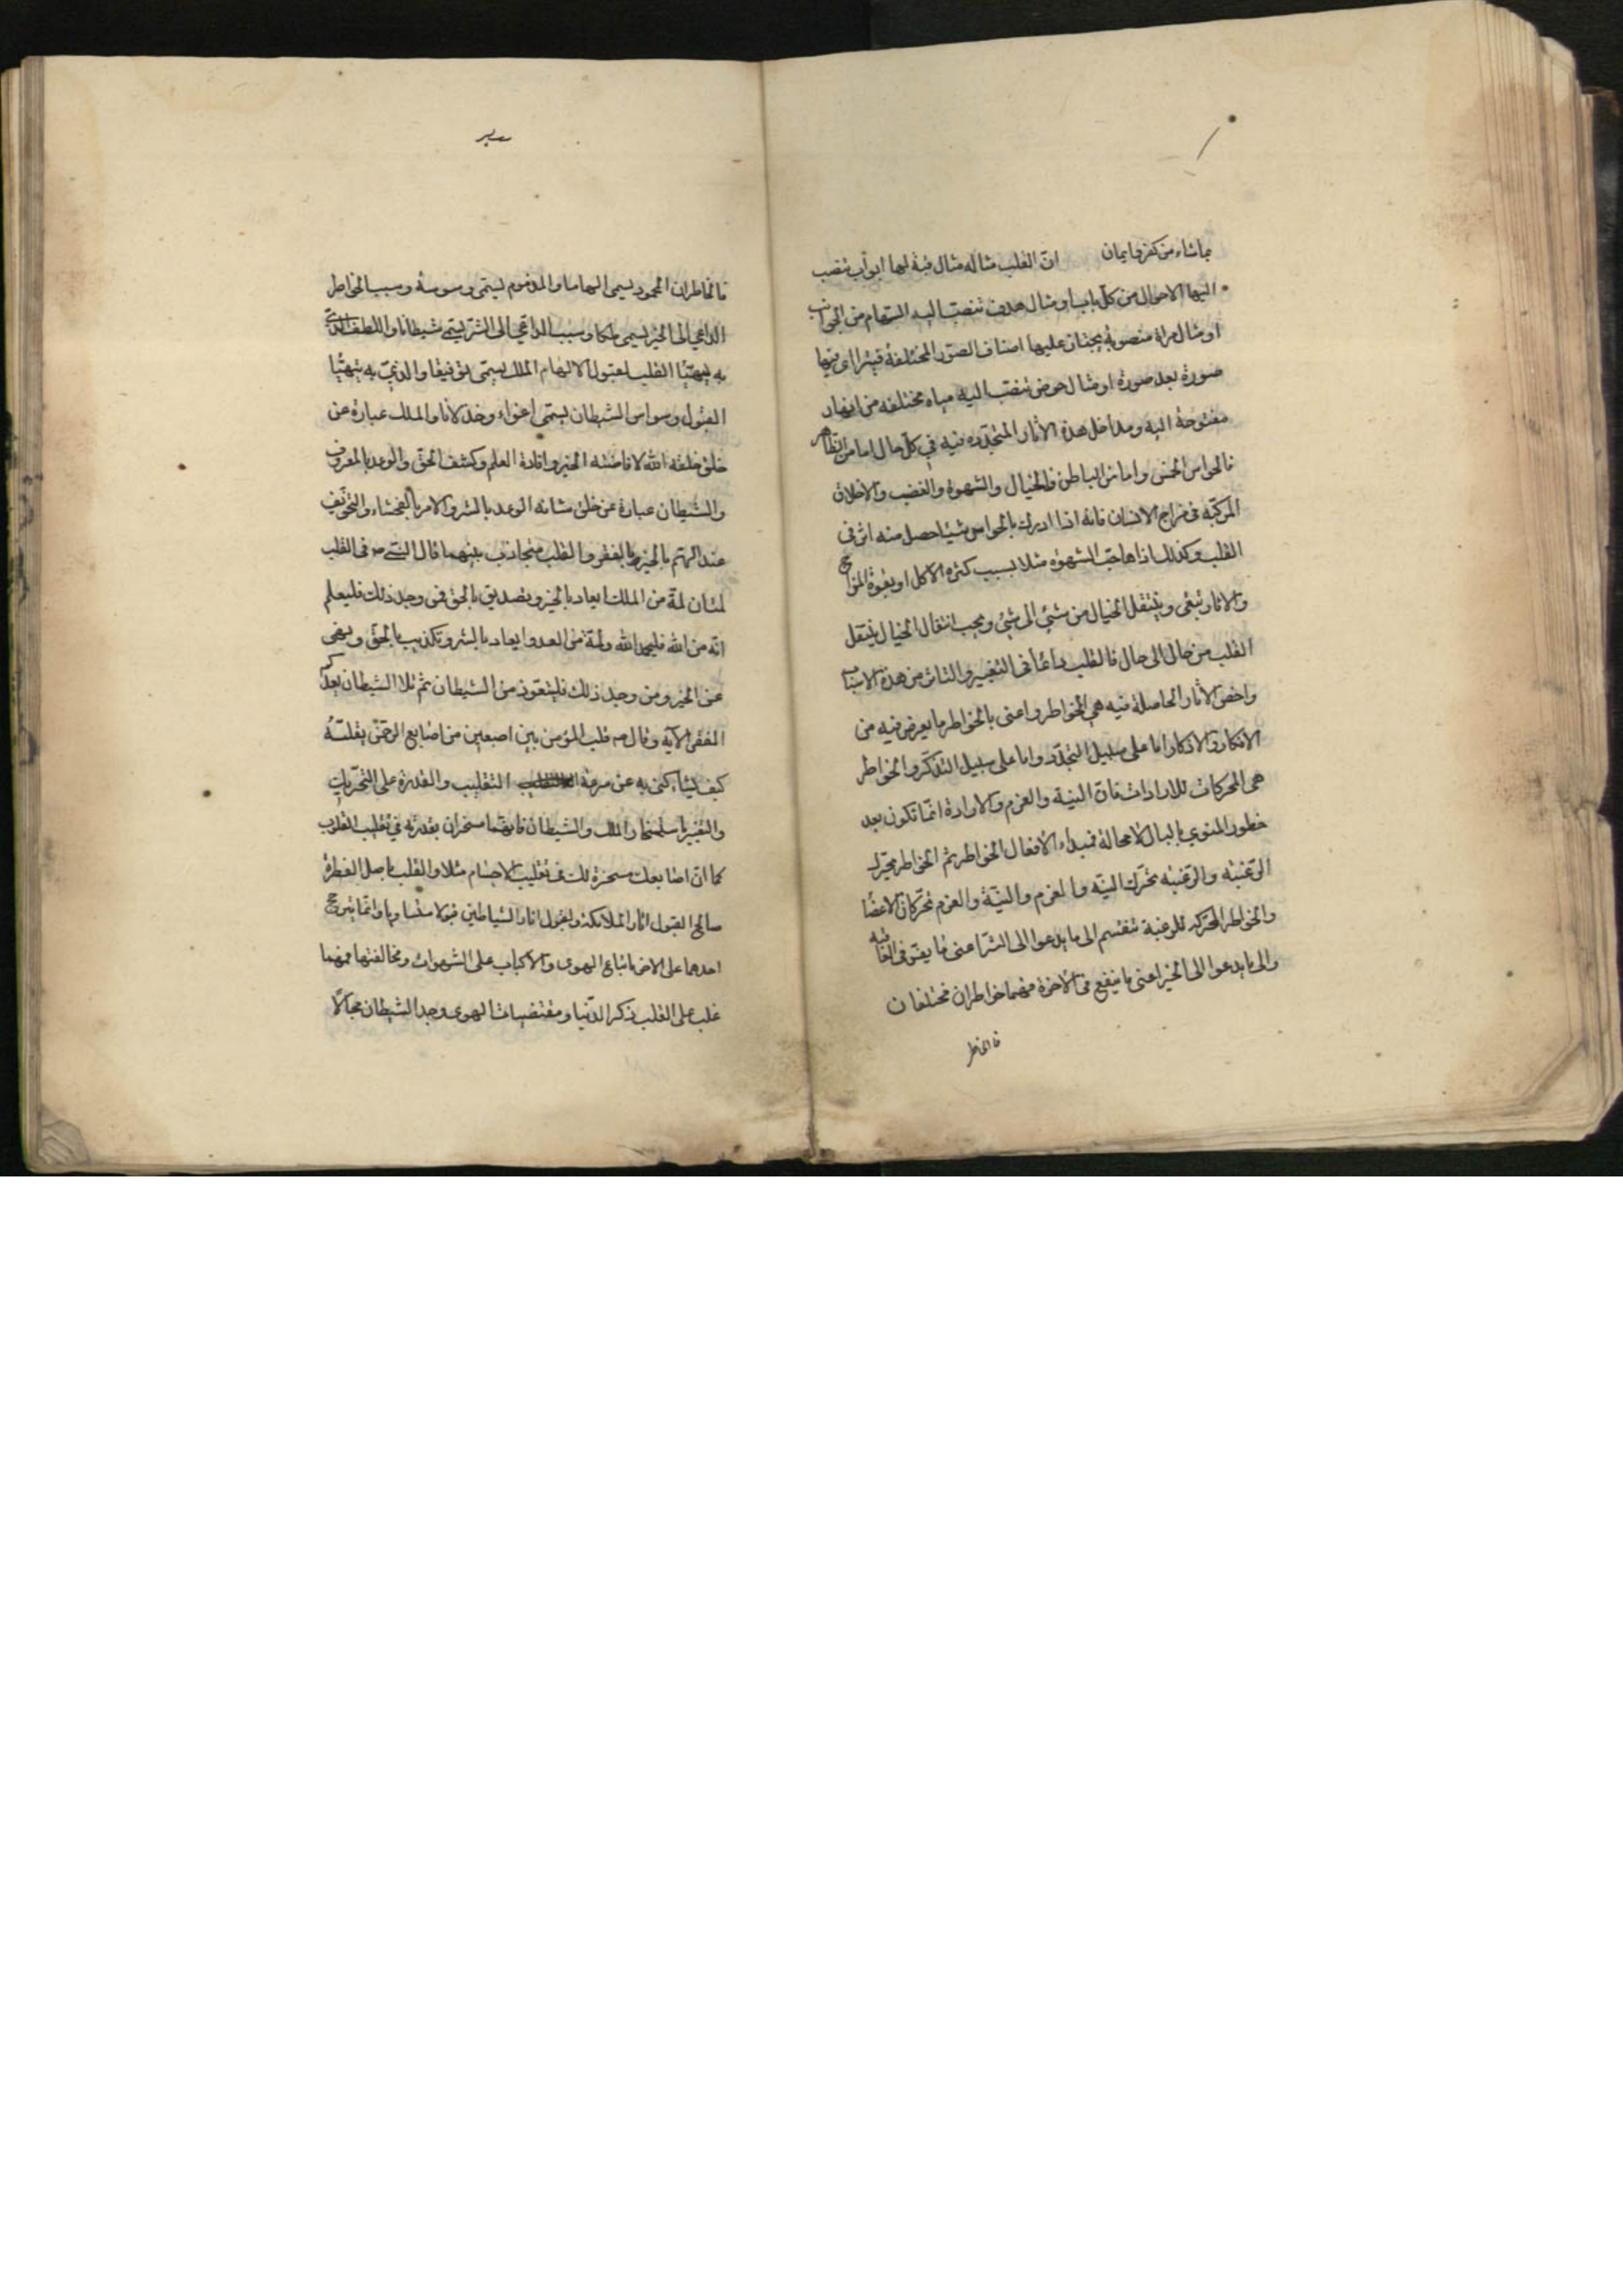 ماشاء من كفر وايمان انّ القلب مثاله مثال قبة لها ابواب تنصب
اليها الاحوال من كل باب او مثال هدف تنصب اليه السهام من الجوانب
او مثال مرآة منصوبة يجتاز عليها اصناف الصور المختلفة فيترااى فيها
صورة بعد صورة او مثال حوض تنصب اليه مياه مختلفه من انهار
مفتوحة اليه ومداخل هذه الاثار المتجدده فيه في كل حال اما من الظاهر
فالحواس الخمس واما من الباطن فالخيال والشهوة والغضب والاخلاق
المركبة في مزاج الانسان فانه اذا ادرك بالحواس شيئا حصل منه اثر في
القلب وكذلك اذا هاجت الشهوة مثلا بسبب كثرة الاكل او بقوة المزاج
والاثار تبقى وينتقل الخيال من شئ الى شئ وبحسب انتقال الخيال ينتقل
القلب من حال الى حال فالقلب دائما فى التغيير والتاثر من هذه الاسباب
واخص الاثار الحاصلة فيه هي الخواطر واعنى بالخواطر ما يعرض فيه من
الافكار والاذكار اما على سبيل التجدد واما على سبيل التذكر والخواطر
هى المحركات للارادات فان النية والعزم والارادة انما تكون بعد
خطور المنوي بالبال لا محالة فمبداء الافعال الخواطر ثم الخاطر يحرك
الرغبة والرغبة تحرك النية والعزم والنية والعزم تحركان الاعضا
والخواطر المحركه للرغبة تنقسم الى ما يدعوا الى الشر اعنى ما يضر فى العاقبه
والى ما يدعوا الى الخير اعنى ما ينفع فى الاخرة فهما خاطران مختلفان
فالخاطر
فالخاطران المحمود يسمى الهاما والمذموم يسمى وسوسة وسبب الخواطر
الداعي الى الخير يسمى ملكا وسبب الداعي الى الشر يسمى شيطانا واللطف الذي
به يتهيّأ القلب لقبول الالهام الملك يسمى توفيقا والذي به يتهيّأ
القبول وسواس الشيطان يسمى اغواء وخذلانا والملك عبارة عن
خلق خلقه الله لافاضته الخير وافادة العلم وكشف الحق والوعد بالمعروف
والشيطان عبارة عن خلق شانه الوعد بالشر والامر بالفحشاء والتخويف
عند الهم بالخير بالفقر والقلب متجاذب بينهما قال النبي ص فى القلب
لمتان لمة من الملك ايعاد بالخير وتصديق بالحق فمن وجد ذلك فليعلم
انه من الله فليحمد الله ولمة من العدو ايعاد بالشر وتكذيب بالحق ونهى
عن الخير ومن وجد ذلك فليتعوذ من الشيطان ثم تلا الشيطان يعدكم
الفقر الآيه وقال ص قلب المؤمن بين اصبعين من اصابع الرحمن يقلبه
كيف يشاء كنى به عن سرعة التقليب والقدرة على التحريك
والتغيير باستسخار الملك والشيطان فانهما مسخران بقدرته في تقليب القلوب
كما ان اصابعك مسخرة لك فى تقليب الاجسام مثلا والقلب باصل الفطرة
صالح لقبول اثار الملائكة ولقبول اثار الشياطين قبولا متساويا وانما يترجح
احدهما على الاخر باتباع الهوى والاكباب على الشهوات ومخالفتها فمهما
غلب على القلب ذكر الدنيا ومقتضيات الهوى وجد الشيطان مجالا